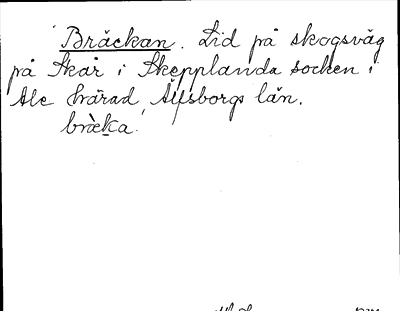 Bräckan. Lid på skogsväg
på Skår i Skepplanda socken i
Ale härad, Älfsborgs län.
bräka.